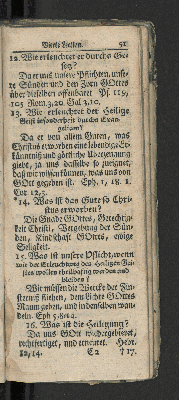 Viertes Leiden. 51
12. Wie erleuchtet er durchs Ge-
setz?
Da er uns unsere Pflichten, unse-
re Sünden und den Zorn GOttes
über dieselben offenbaret Ps. 119,
105 Rom. 3,20. Gal. 3,10.
13. Wie erleuchtet der Heilige
Geist insonderheit durchs Evan-
gelium?
Da er von allem Guten, was
Christus erworben eine lebendige Er-
känntnis und göttliche Uberzeugung
giebt, ja uns dasselbe so zueignet,
daß wir wissen können, was uns von
GOtt gegeben ist. Eph. 1, 18. 1.
Cor. 12,3.
*14. Was ist das Gute so Chri-
stus erworben?
Die Gnade GOttes, Gerechtig-
keit Christi, Vergebung der Sün-
den, Kindschaft GOttes, ewige
Seligkeit.
15. Was ist unsere Pflicht, wenn
wir der Erleuchtung des Heiligen Gei-
stes wollen theilhaftig werden und
bleiben?
Wir müssen die Wercke der Fin-
sterniß fliehen, dem Lichte GOttes
Raum geben, und in demselben wan-
deln. Eph. 5,8-14.
16. Was ist die Heiligung?
Da uns GOtt wiedergebieret,
rechtfertiget, und erneuret. Hebr.
12,14. C2 †17.